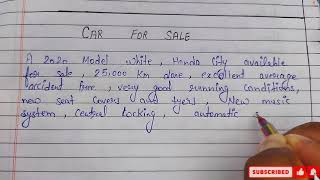 CAR FOR SALE
A 2020 Model white, Honda City available
for sale, 25,000 Km done, excellent average
accident free, very good running conditions,
new seat covers and tyers, New music
system, central locking, automatic
SUBSCRIBED